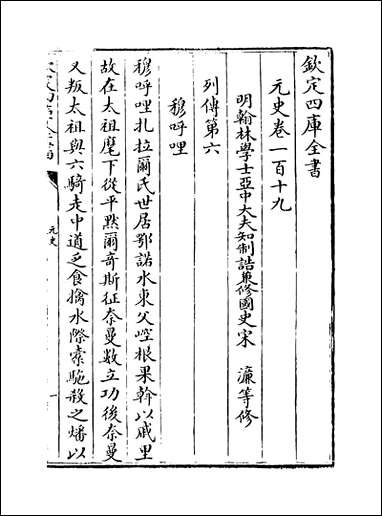 欽定四庫全書
元史卷一百十九
明翰林學士亞中大夫知制誥兼修國史宋　濂等修
列傳第六
穆呼哩
穆呼哩扎拉爾氏世居鄂諾水東父崆根果斡以戚里
故在太祖麾下從平默爾奇斯征奈曼數立功後奈曼
又叛太祖與六騎走中道乏食擒水際橐駞殺之燔以
元史